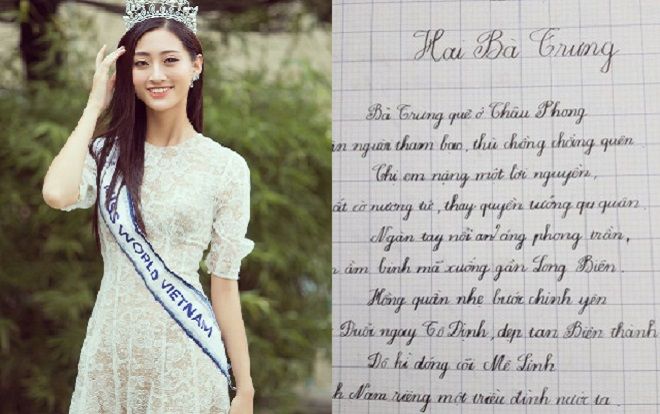 MISS WORLD VIETNAM
Hai Bà Trưng
Bà Trưng quê ở Châu Phong
người tham bạo, thù chồng chẳng quên
Chị em nặng một lời nguyền,
cờ nương tử, thay quyền tướng quân
Ngàn tay nổi áng phong trần,
ầm binh mã xuống gần Long Biên
Hồng quần nhẹ bước chinh yên
Đuổi ngay Tô Định, dẹp tan Biên thành
Đô kì đóng cõi Mê Linh
Nam riêng một triều đình nước ta